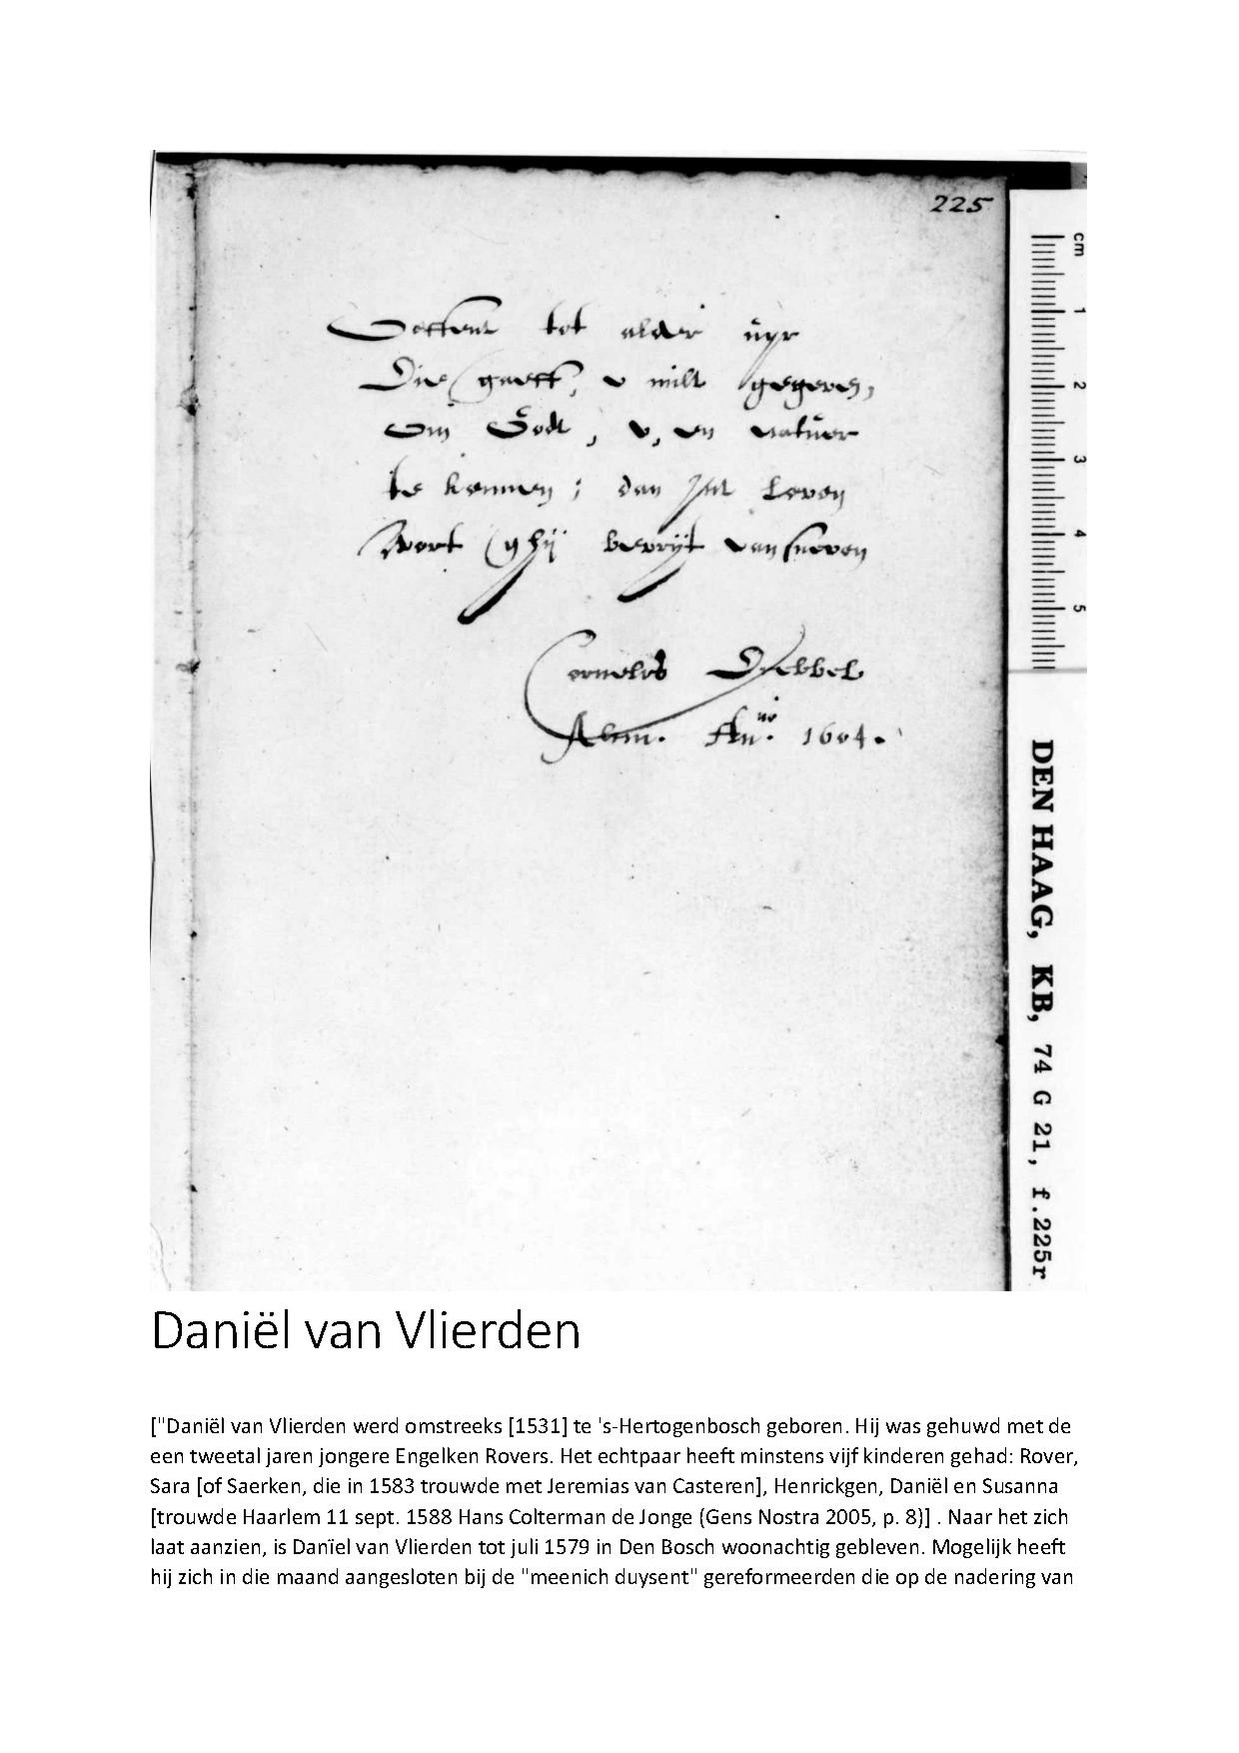 225
Oeffent tot alder uyr
Die gaeff, v milt gegeven,
Om Godt, v, en natuer
te kennen; dan int Leven
Wort ghij bevrijt van sneven
Cornelis Drebbel
Alcm. An.no 1604.
cm
1
2
3
4
5
DEN HAAG, KB, 74 G 21, f.225r
Daniël van Vlierden
["Daniël van Vlierden werd omstreeks [1531] te 's-Hertogenbosch geboren. Hij was gehuwd met de
een tweetal jaren jongere Engelken Rovers. Het echtpaar heeft minstens vijf kinderen gehad: Rover,
Sara [of Saerken, die in 1583 trouwde met Jeremias van Casteren], Henrickgen, Daniël en Susanna
[trouwde Haarlem 11 sept. 1588 Hans Colterman de Jonge (Gens Nostra 2005, p. 8)] . Naar het zich
laat aanzien, is Danïel van Vlierden tot juli 1579 in Den Bosch woonachtig gebleven. Mogelijk heeft
hij zich in die maand aangesloten bij de "meenich duysent" gereformeerden die op de nadering van